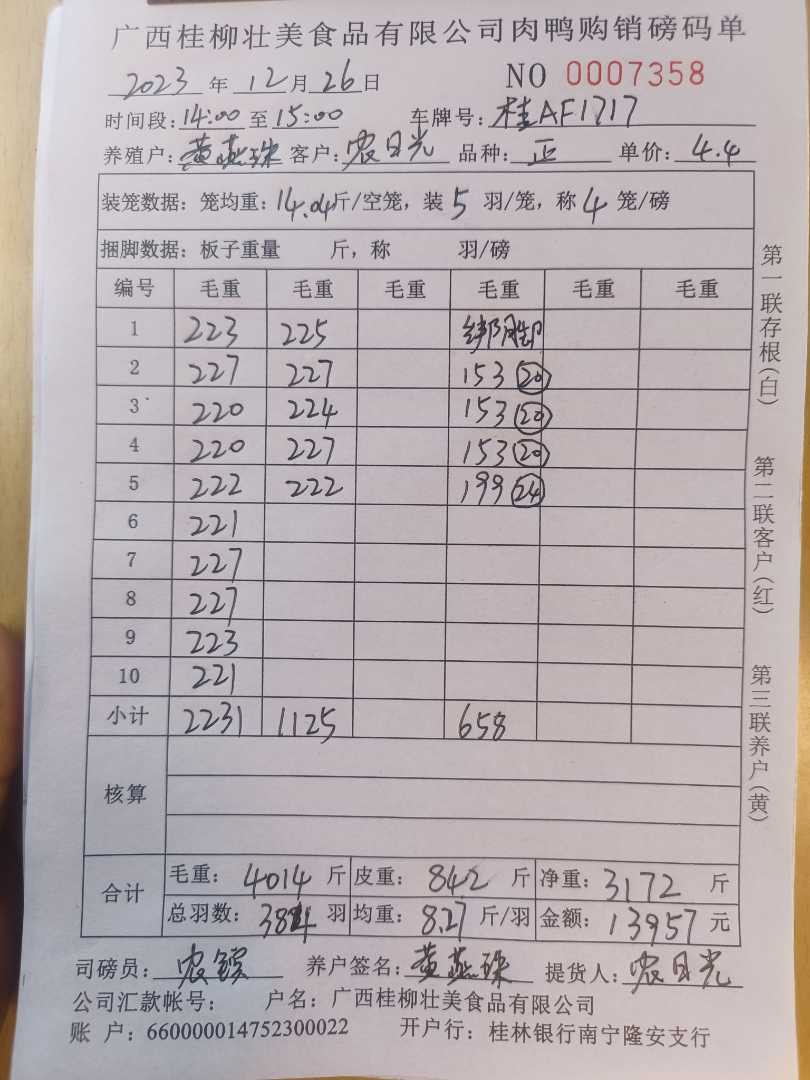 广西桂柳壮美食品有限公司肉鸭购销磅码单
2023 年 12 月 26 日 NO 0007358
时间段: 14:00 至 15:00 车牌号: 桂AF1717
养殖户: 黄燕珠 客户: 农日光 品种: 正 单价: 4.4
装笼数据: 笼均重: 14.04 斤/空笼, 装 5 羽/笼, 称 4 笼/磅
捆脚数据: 板子重量 斤, 称 羽/磅
编号 毛重 毛重 毛重 毛重 毛重 毛重
1 223 225
2 227 227 153 20
3 220 224 153 20
4 220 227 153 20
5 222 222 199 24
6 221
7 227
8 227
9 223
10 221
小计 2231 1125 658
核算
合计 毛重: 4014 斤 皮重: 842 斤 净重: 3172 斤
总羽数: 384 羽 均重: 8.27 斤/羽 金额: 13957 元
司磅员: 农 养户签名: 黄燕珠 提货人: 农日光
公司汇款帐号: 户名: 广西桂柳壮美食品有限公司
账 户: 660000014752300022 开户行: 桂林银行南宁隆安支行
第一联存根(白)
第二联客户(红)
第三联养户(黄)